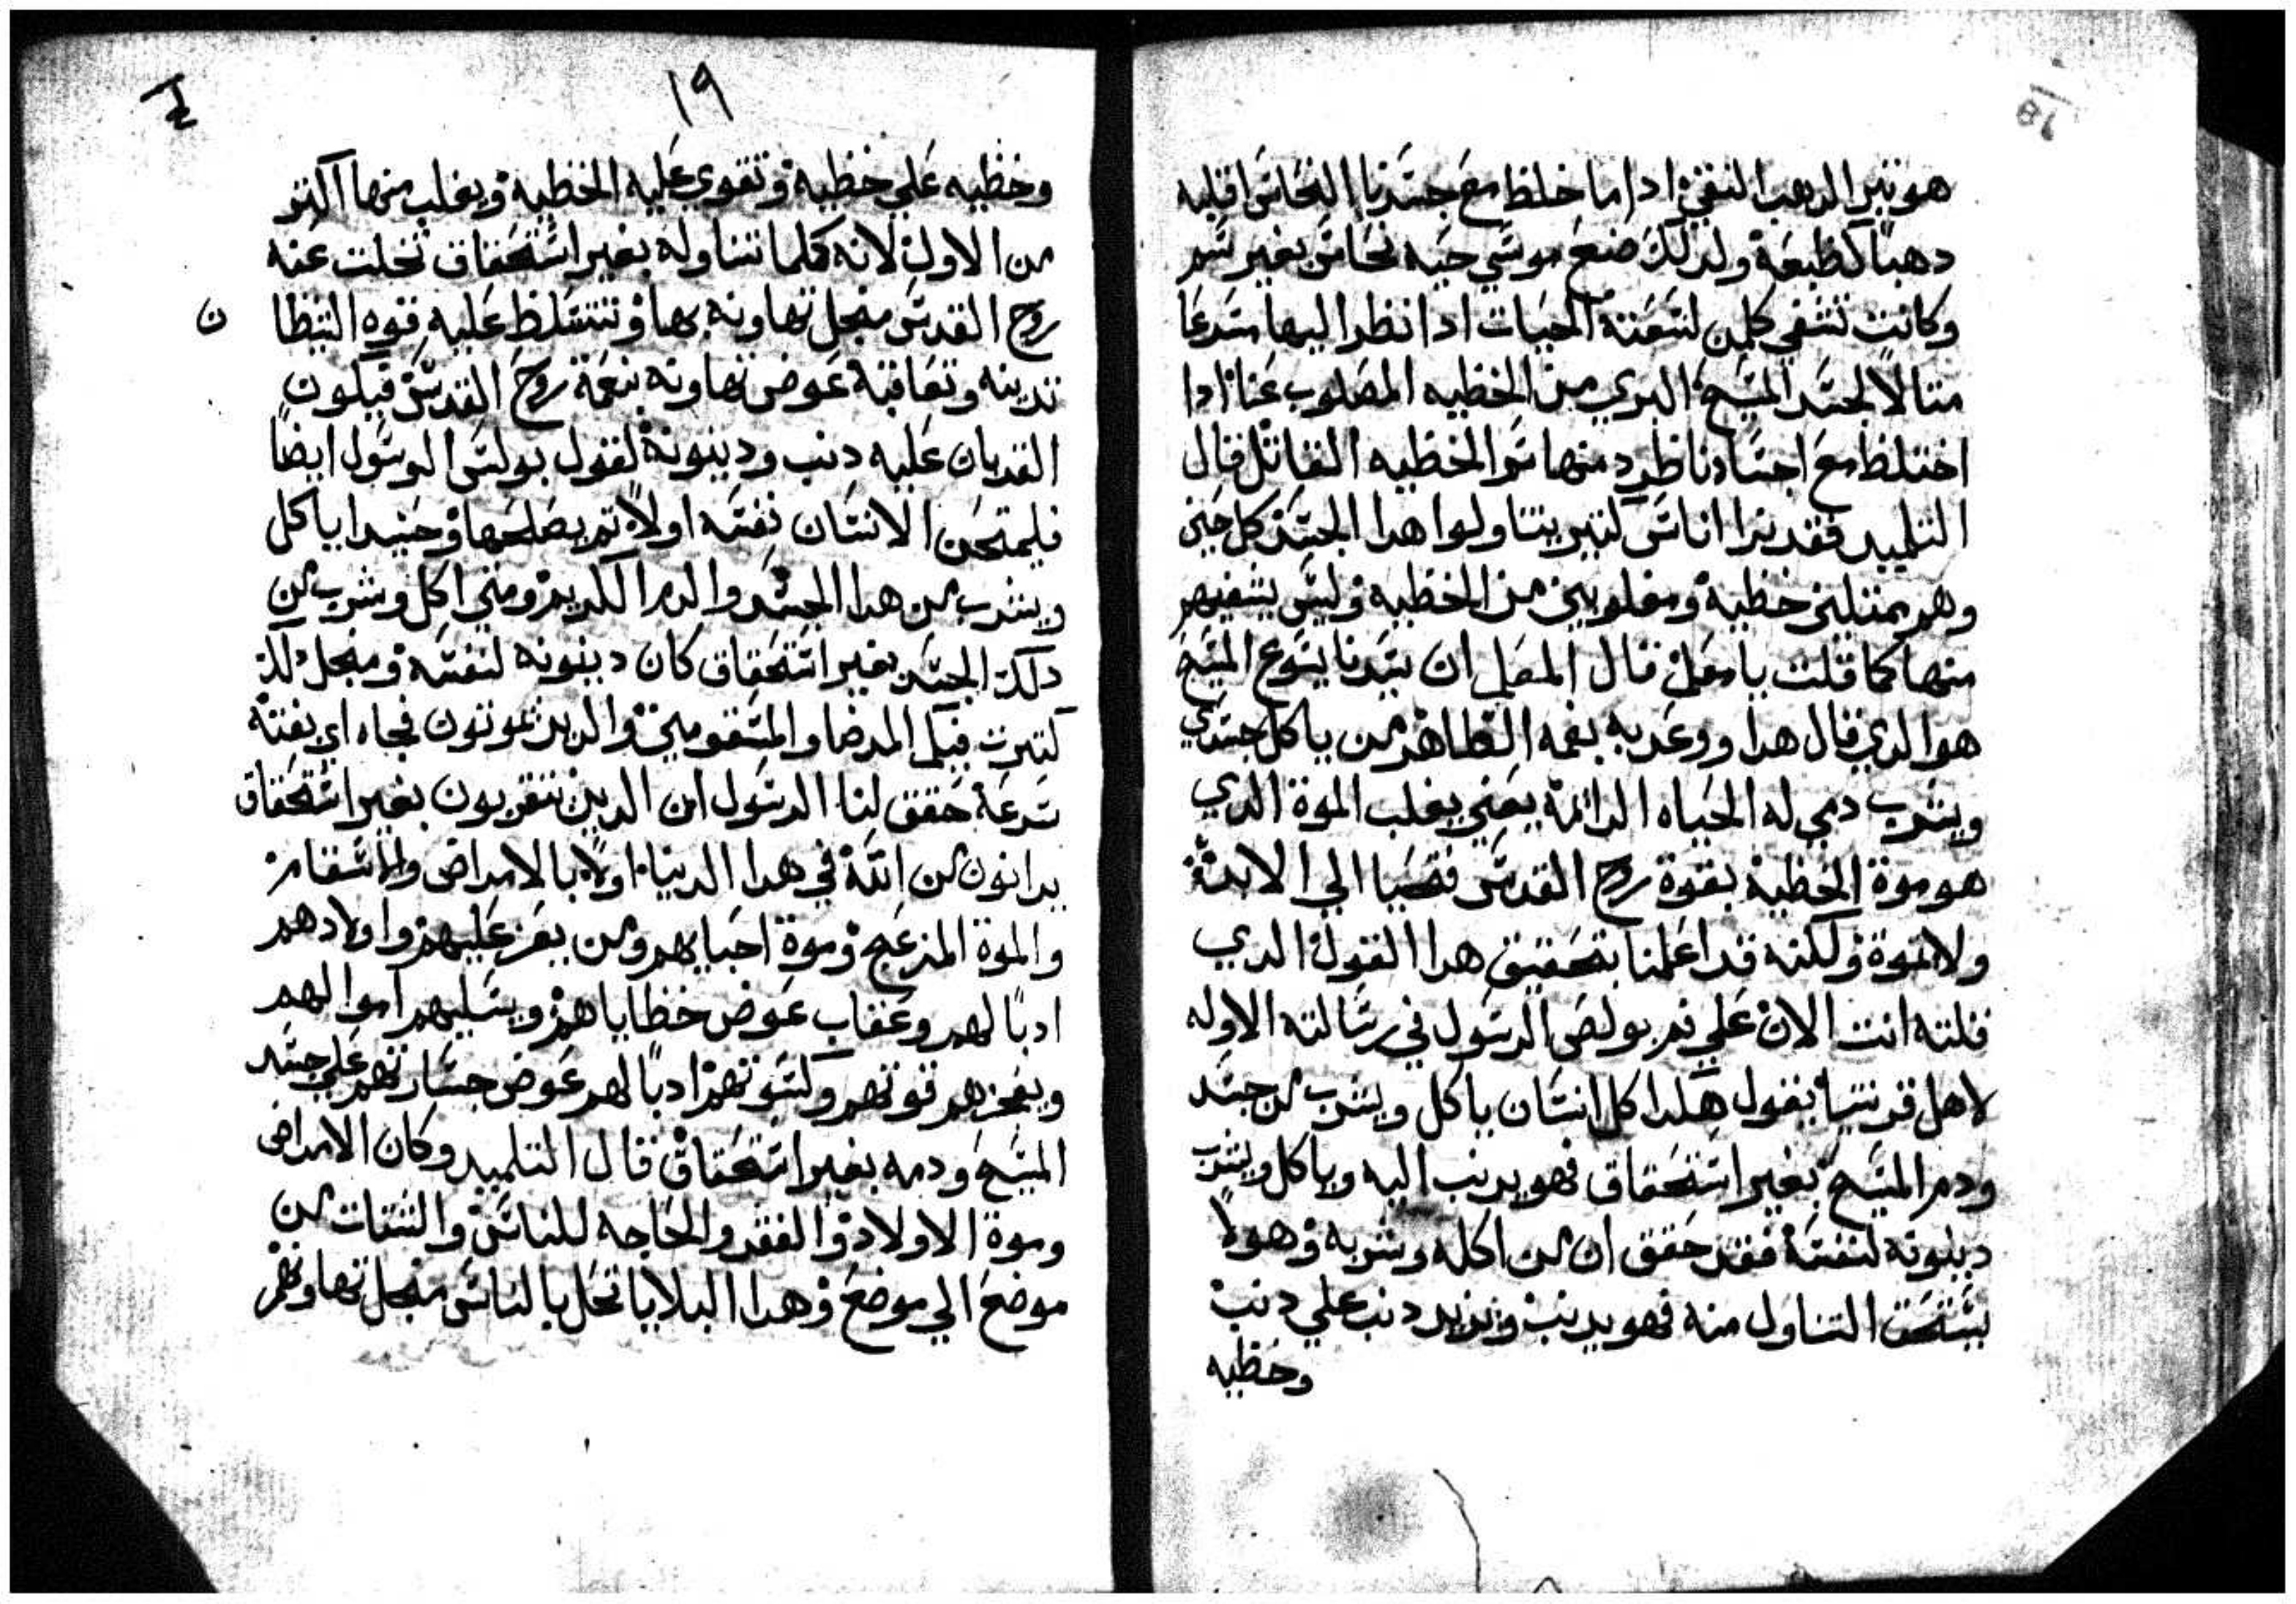 هو تبر الدهب النقي ادا ما خلط مع جسدنا النحاس اقلبه
دهبًا كطبعه ولدلك صنع موسي حيه نحاس بغير سم
وكانت تشفي كلمن لسعته الحيات ادا نظر اليها سرعا
متالاً لجسد المسيح البري من الخطيه المصلوب عنا ادا
اختلط مع اجسادنا طرد منها سم الخطيه القاتل قال
التلميد فقد نرا اناس كتير يتناولوا هدا الجسد كل حين
وهم ممتليين خطية ومغلوبين من الخطية وليس يشفيهم
منها كما قلت يا معلم قال المعلم ان سيدنا يسوع المسيح
هو الدي قال هدا ووعد به بفمه الطاهر من ياكل جسدي
ويشرب دمي له الحياه الدائمة يعني يغلب الموة الدي
هو موة الخطية بقوة روح القدس فيحيا الي الابد
ولا يموة ولكنه قد اعلمنا بتحقيق هدا القول الدي
قلته انت الان علي فم بولص الرسول في رسالته الاوله
لاهل قرنتيا يقول هكدا كل انسان ياكل ويشرب من جسد
ودم المسيح بغير استحقاق فهو يدنب اليه وياكل ويشرب
دينونه لنفسه فقد حقق ان من اكله وشربه وهو لا
يستحق التناول منه فهو يدنب ويزيد دنب علي دنب
وخطيه
١٩
وخطيه علي خطية وتقوي عليه الخطية ويغلب منها اكتر
من الاول لانه كلما تناوله بغير استحقاق تخلت عنه
روح القدس منجل تهاونه بها وتتسلط عليه قوه الشيطا
ن
تدينه وتعاقبه عوض تهاونه بنعمة روح القدس فيكون
القربان عليه دنب ودينونة لقول بولس الرسول ايضًا
فليمتحن الانسان نفسه اولاً تم يصلحها وحنيدا ياكل
ويشرب من هدا الجسد والدم الكريم ومتي اكل وشرب من
دلك الجسد بغير استحقاق كان دينونه لنفسه ومنجل دلك
كترت فيكم المرضا والمسقومين والدين يموتون فجاه اي بغتة
سرعة حقق لنا الرسول ان الدين يتقربون بغير استحقاق
يدانون من الله في هدا الدنيا اولاً بالامراض والاسقام
والموة المزعج وموة احبايهم ومن يعز عليهم واولادهم
ادبًا لهم وعقاب عوض خطاياهم ويسلبهم اموالهم
ويعجزهم قوتهم وكسوتهم ادبًا لهم عوض جسارتهم علي جسد
المسيح ودمه بغير استحقاق قال التلميد وكان الامراض
وموة الاولاد والفقر والحاجه للناس والشتات من
موضع الي موضع وهدا البلايا تحل بالناس منجل تهاونهم